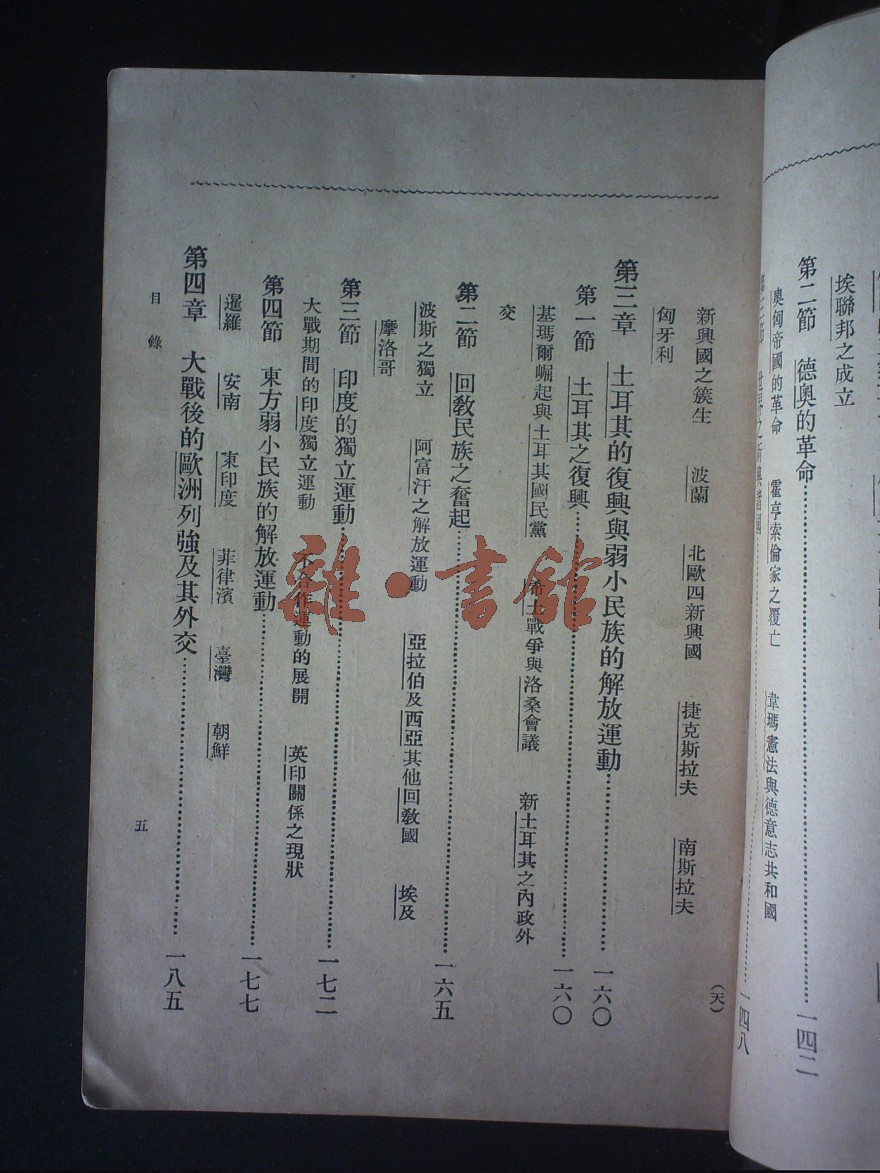 埃聯邦之成立
第二節　德奥的革命……一四二
奥匈帝國的革命　霍亨索倫家之覆亡　韋瑪憲法與德意志共和國
一四八
新興國之簇生　波蘭　北歐四新興國　捷克斯拉夫　南斯拉夫
匈牙利
第三章　土耳其的復興與弱小民族的解放運動……一六〇
第一節　土耳其之復興……一六〇
基瑪爾崛起與土耳其國民黨　希土戰爭與洛桑會議　新土耳其之內政外
交
第二節　回教民族之奮起……一六五
波斯之獨立　阿富汗之解放運動　亞拉伯及西亞其他回教國　埃及
摩洛哥
第三節　印度的獨立運動……一七二
大戰期間的印度獨立運動　不合作運動的展開　英印關係之現狀
第四節　東方弱小民族的解放運動……一七七
暹羅　安南　東印度　菲律濱　臺灣　朝鮮
第四章　大戰後的歐洲列強及其外交……一八五
目錄
五
(天)
雜·書館